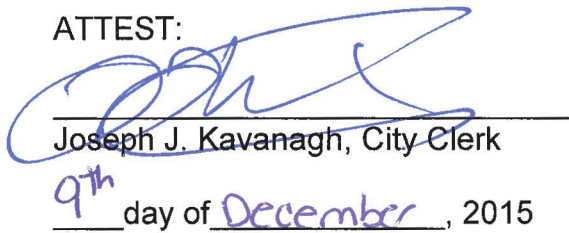 ATTEST:
Joseph J. Kavanagh, City Clerk
9th day of December, 2015